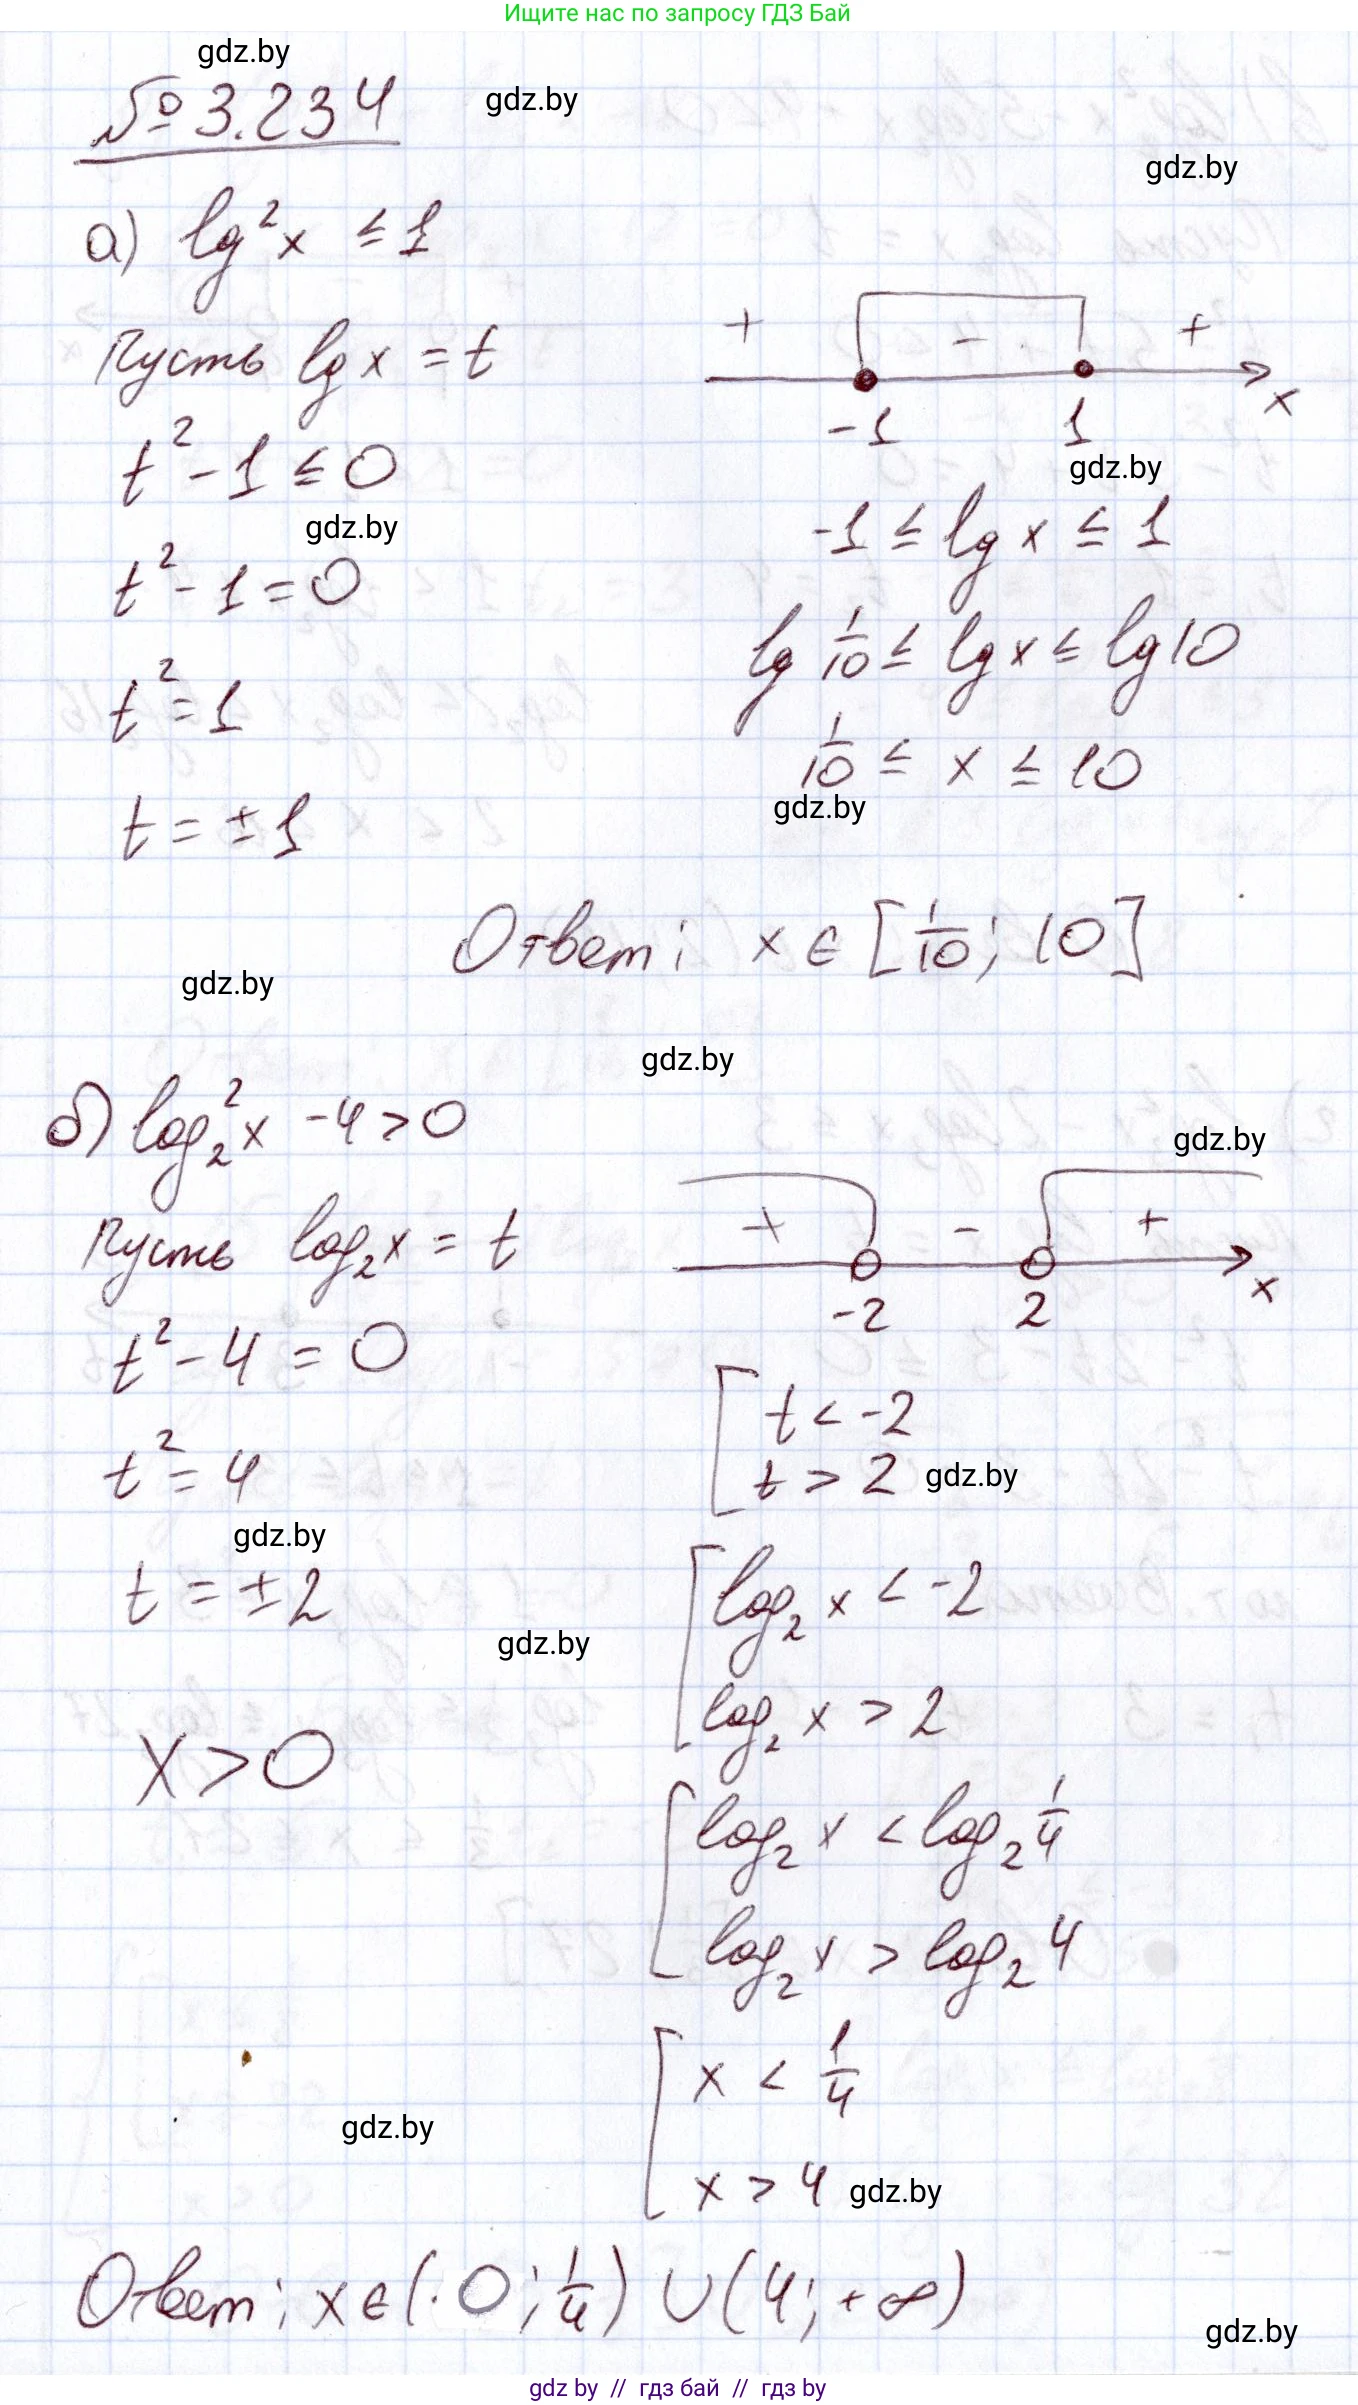 Ищите нас по запросу ГДЗ Бай
gdz.by
№ 3.234
gdz.by
gdz.by
а) lg²x ≤ 1
Пусть lg x = t
t² - 1 ≤ 0
gdz.by
t² - 1 = 0
t² = 1
t = ± 1
+ - +
-1 1 x
gdz.by
-1 ≤ lg x ≤ 1
lg 1/10 ≤ lg x ≤ lg 10
1/10 ≤ x ≤ 10
gdz.by
Ответ: x ∈ [1/10; 10]
gdz.by
gdz.by
б) log₂²x - 4 > 0
Пусть log₂x = t
t² - 4 = 0
t² = 4
gdz.by
t = ± 2
gdz.by
x > 0
gdz.by
+ - +
-2 2 x
[ t < -2
t > 2
gdz.by
[ log₂ x < -2
log₂ x > 2
[ log₂ x < log₂ 1/4
log₂ x > log₂ 4
[ x < 1/4
x > 4
gdz.by
gdz.by
Ответ: x ∈ (0; 1/4) ∪ (4; +∞)
gdz.by
gdz by // гдз бай // гдз by